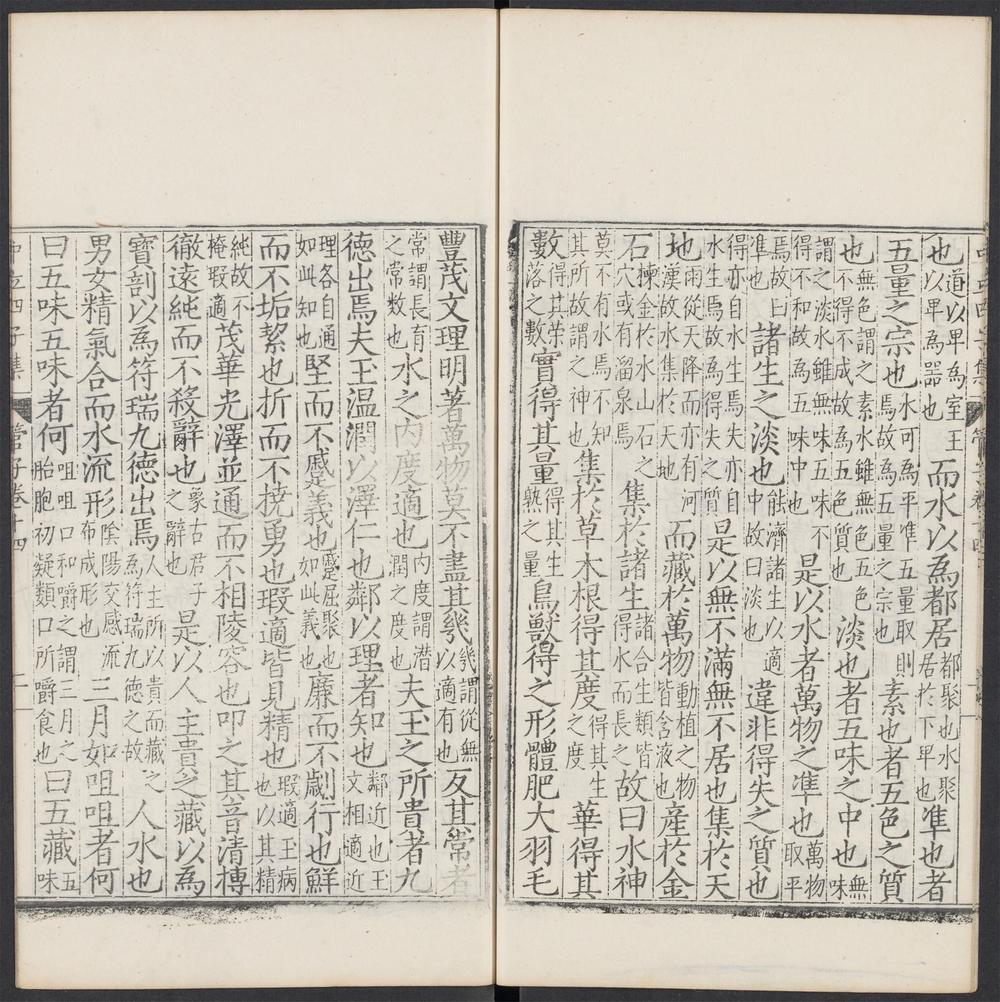 也道以卑為室王也以卑為器也而水以為都居都聚也水聚居於下卑也凖也者
五量之宗也水可為平凖五量取則焉故為五量之宗也素也者五色之質
也無色謂之素水雖無色五色不得不成故為五色質也淡也者五味之中也無味
謂之淡水雖無味五味不得不和故為五味中也是以水者萬物之凖也萬物取平
焉故曰凖也諸生之淡也能濟諸生以適中故曰淡也違非得失之質也
得亦自水生焉失亦自水生焉故為得失之質是以無不滿無不居也集於天
地雨從天降而亦有河漢故水集於天地而藏於萬物動植之物皆含液也產於金
石揀金於水山石之穴或有溜泉焉集於諸生諸合生類皆得水而長之故曰水神
莫不有水焉不知其所故謂之神也集於草木根得其度得其生之度華得其
數得其榮落之數實得其量得其生熟之量鳥獸得之形體肥大羽毛
豐茂文理明著萬物莫不盡其幾幾謂從無以適有也反其常者
常謂長育之常数也水之内度適也内度謂潜潤之度也夫玉之所貴者九
德出焉夫玉温潤以澤仁也鄰以理者知也鄰近也玉文相適近
理各自通如此知也堅而不蹙義也蹙屈聚也如此義也廉而不劌行也鮮
而不垢絜也折而不撓勇也瑕適皆見精也瑕適玉病也以其精
純故不掩瑕適茂華光澤並通而不相陵容也叩之其音清摶
徹遠純而不殺辭也象古君子之辭也是以人主貴之藏以為
寶剖以為符瑞九德出焉人主所以貴而藏之為符瑞九德之故人水也
男女精氣合而水流形陰陽交感流布成形也三月如咀咀者何
曰五味五味者何咀咀口和嚼之謂三月之胎胞初凝類口所嚼食也曰五藏五味
中立四子集 管子卷十四 二